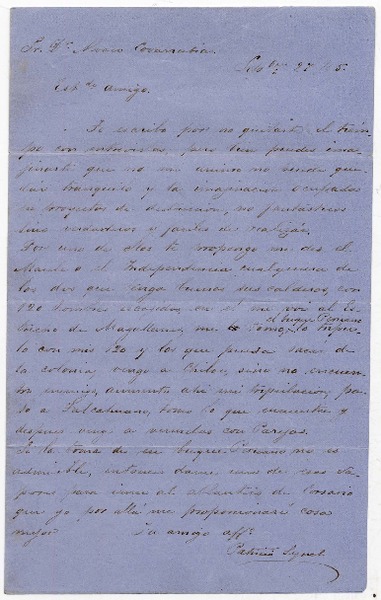 Sr. Dn. Alvaro Covarrubia.
Spbre. 27 65.
Est. do amigo.
Te escribo por no quitarte el tiem-
po con entrevistas, pero bien puedes ima-
jinarte que no me
tranquilo y la imajinacion ocupada
en proyectos de destruccion, no fantasticos
sino verdaderos i faciles de realizar.
Por uno de ellos te propongo me des el
Maule o el Independencia cualquiera de
los dos que tenga buenos sus calderos, con
120 hombres escojidos, en él me voi al Es-
trecho de Magallanes, me tomo el buque Peruano, lo tripu-
lo con mis 120 y los que pueda sacar de
la colonia, vengo a Chiloe, sino no encuen-
tro enemigo, aumento alli mi tripulacion, pa-
so a Talcahuano, tomo lo que encuentre y
despues vengo a verme con Pareja.
Si la toma de ese buque Peruano no es
admisible, entonces dame uno de esos va-
pores para irme al atlantico de Corsario
que yo por allá me proporcionaré cosa
mejor. Tu amigo affo.
Patricio Lynch.